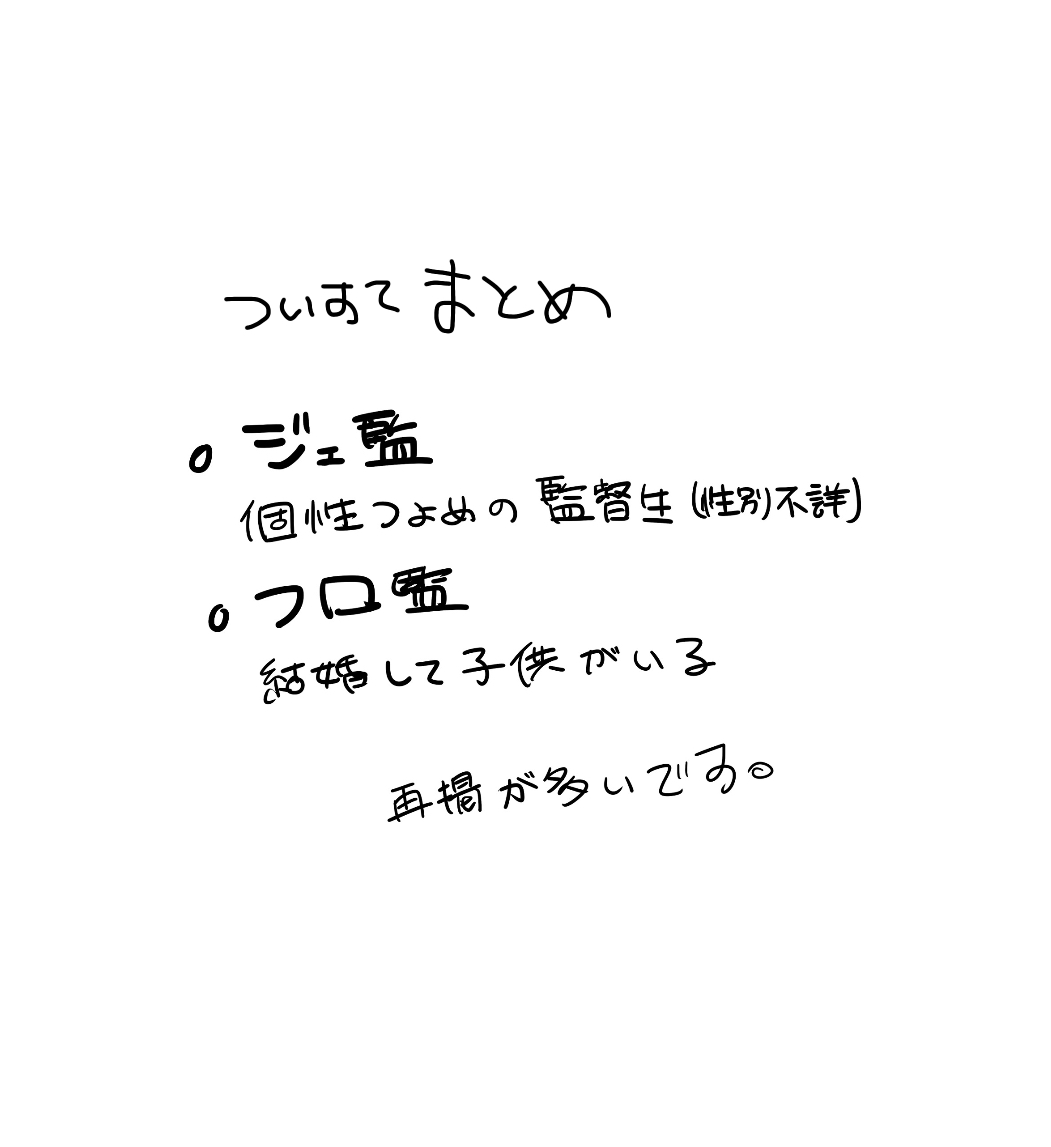 ついすてまとめ
○ ジェ監
個性つよめの監督生(性別不詳)
○ フロ監
結婚して子供がいる
再掲が多いです。